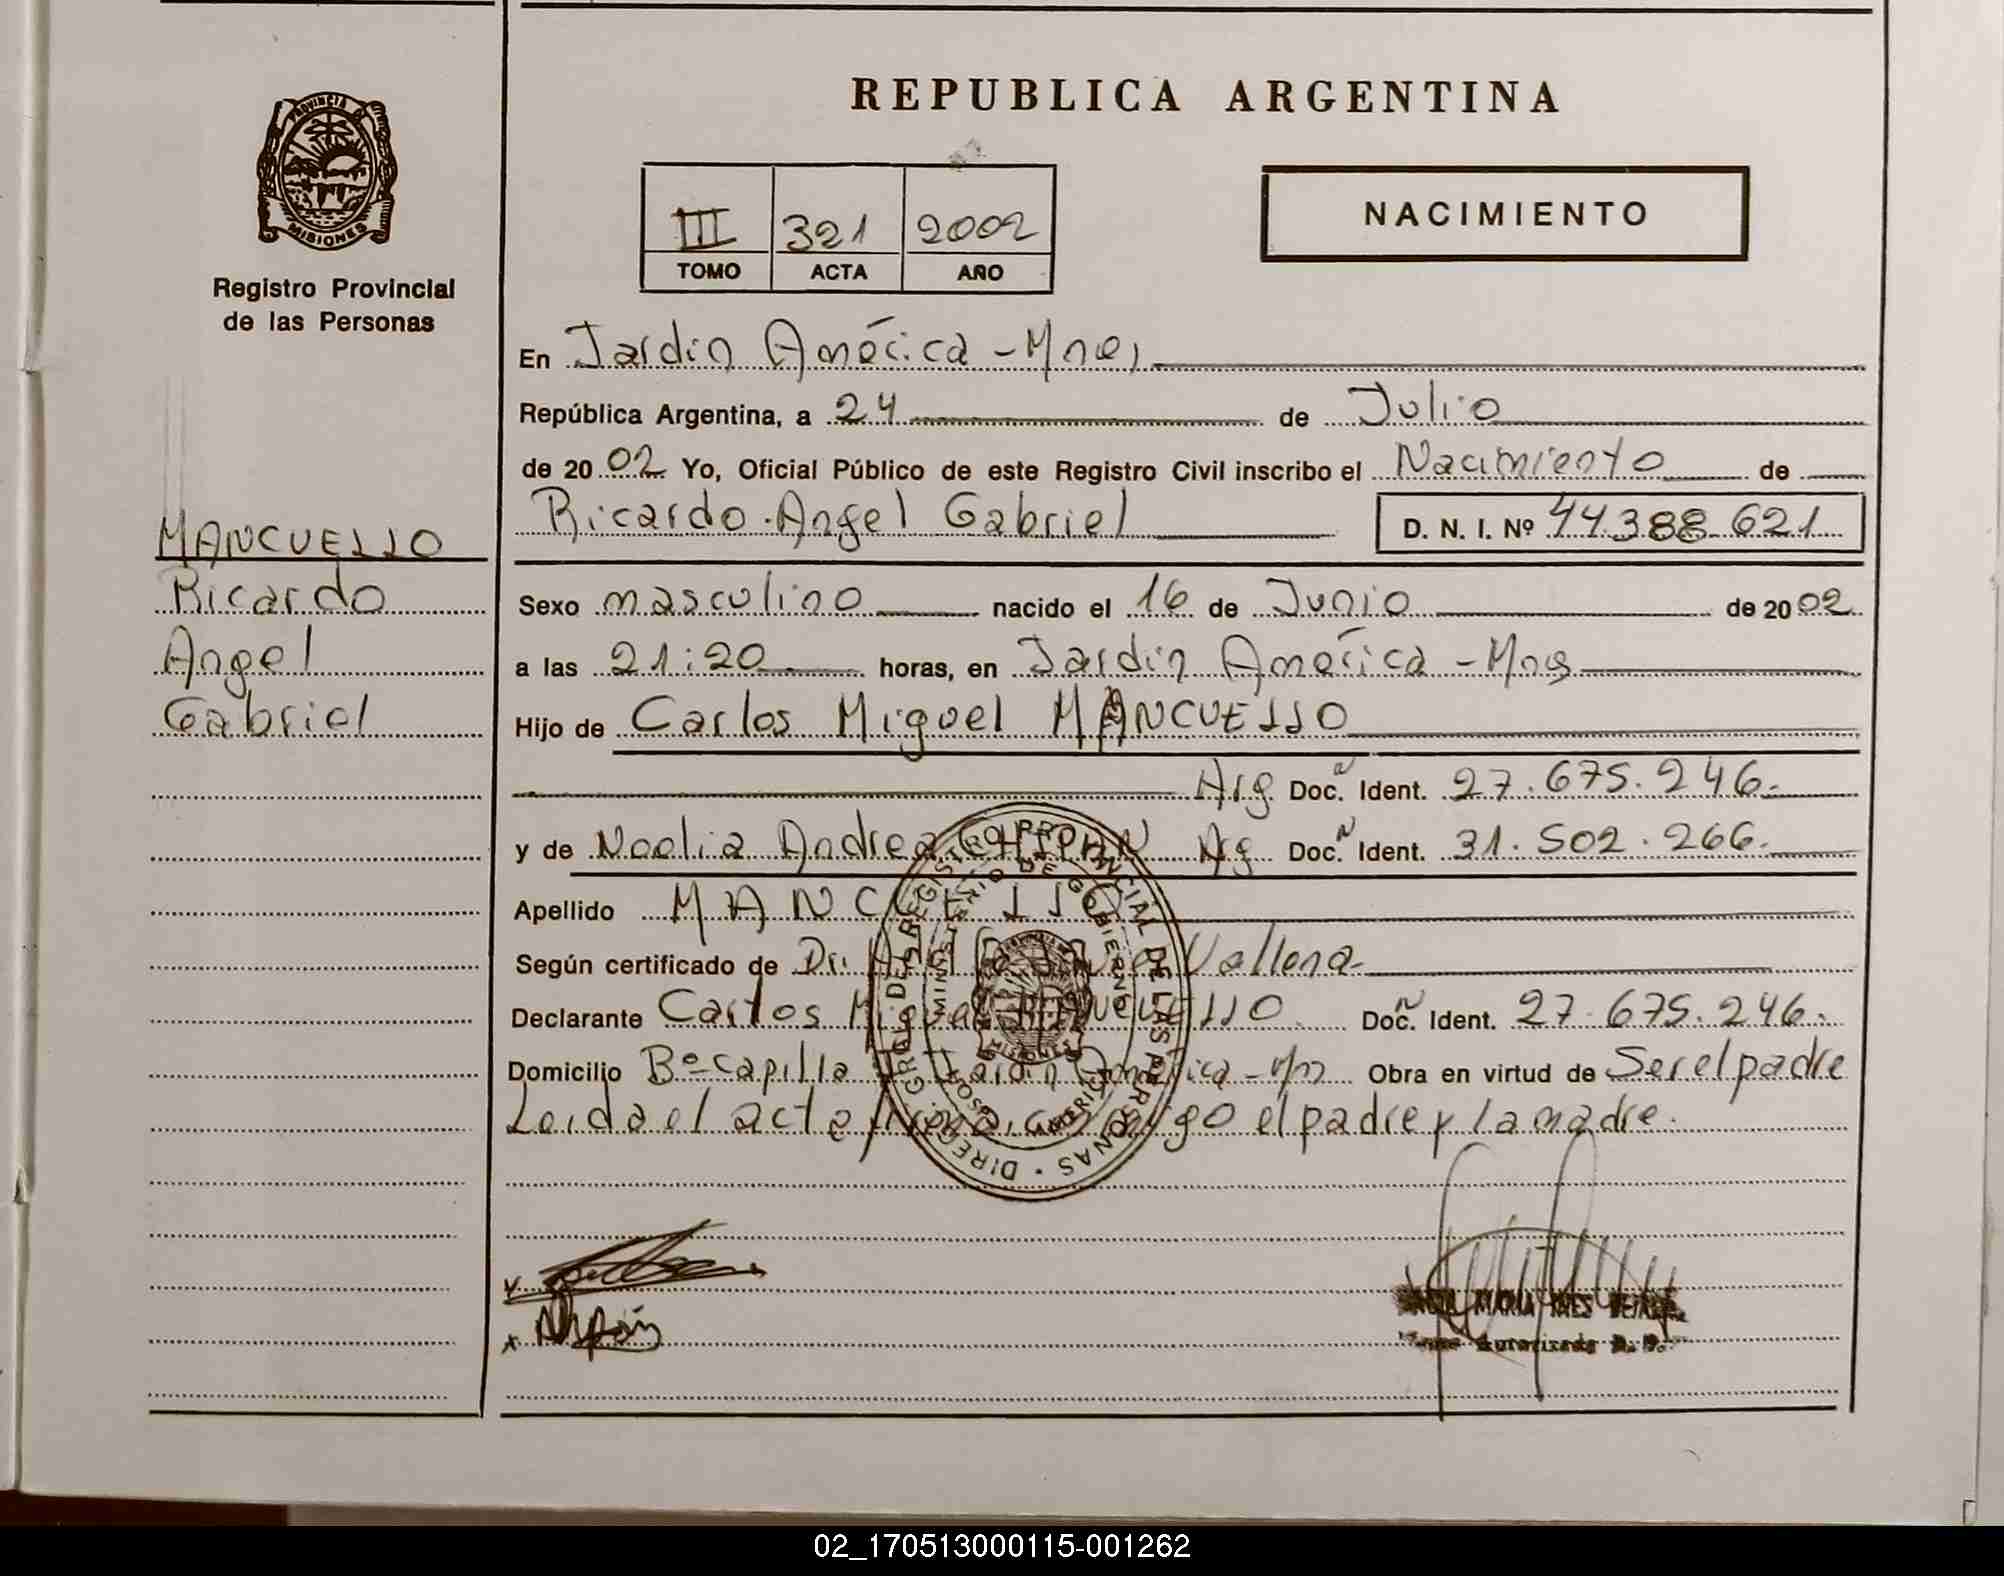 REPUBLICA ARGENTINA
PROVINCIA DE
MISIONES
Registro Provincial
de las Personas
III 321 2002
TOMO ACTA AÑO
NACIMIENTO
En Jardín América - Mnes
República Argentina, a 24 de Julio
de 2002 Yo, Oficial Público de este Registro Civil inscribo el Nacimiento de
Ricardo Angel Gabriel D. N. I. Nº 44.388.621
MANCUELLO
Ricardo
Angel
Gabriel
Sexo masculino nacido el 16 de Junio de 2002
a las 21:20 horas, en Jardín América - Mnes
Hijo de Carlos Miguel MANCUELLO
Arg. Doc. Ident. 27.675.246.
y de Noelia Andrea Arg. Doc. Ident. 31.502.266.
Apellido MANCUELLO
Según certificado de Dr. Vallena
Declarante Carlos Miguel MANCUELLO Doc. Ident. 27.675.246.
Domicilio Bº Capilla Jardín América - Mn Obra en virtud de Ser el padre
Leída el acta firma conmigo el padre y la madre.
DIREC. GRAL. DEL REGISTRO PROVINCIAL DE LAS PERSONAS
MINISTERIO DE GOBIERNO
MARIA INES
Autorizada
02_170513000115-001262